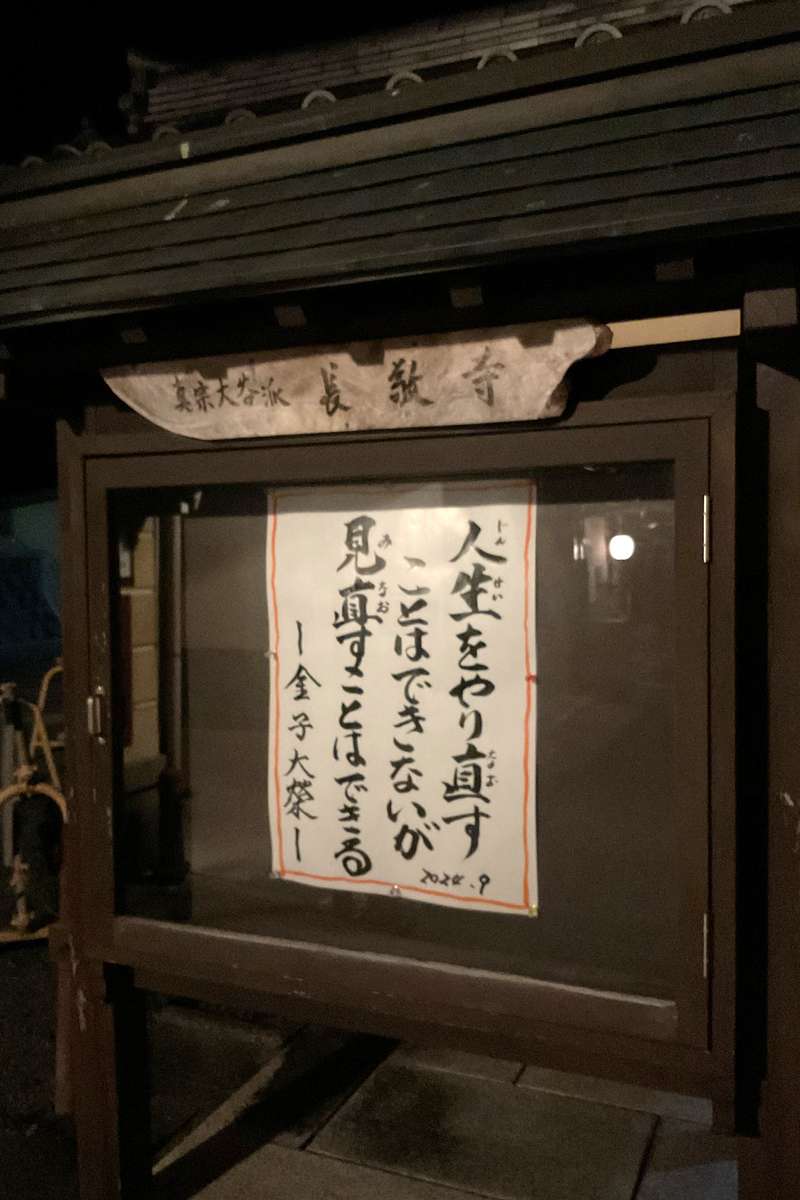 真宗大谷派 長敬寺
人生をやり直す
じんせい
なお
ことはできないが
見直すことはできる
みなお
ー金子大榮ー
2024.9